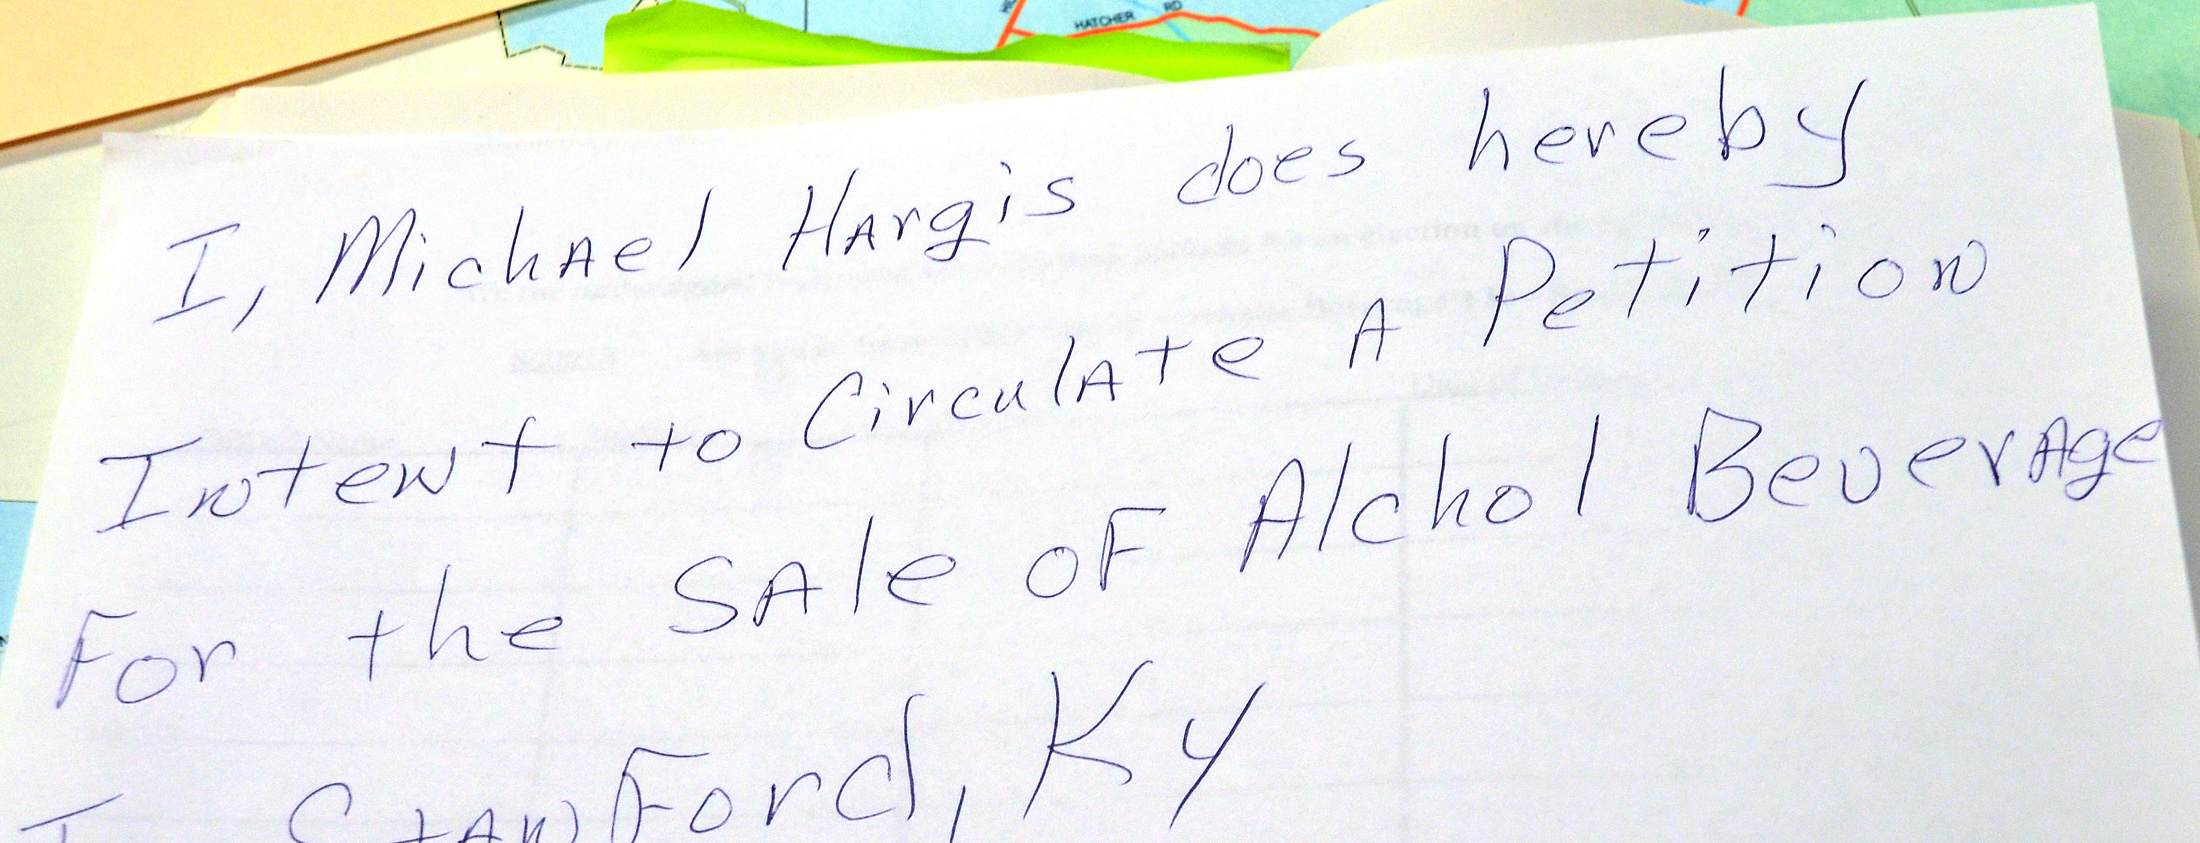 HATCHER RD
I, Michael Hargis does hereby
Intent to Circulate A Petition
For the Sale of Alchol Beverage
In Stanford, Ky